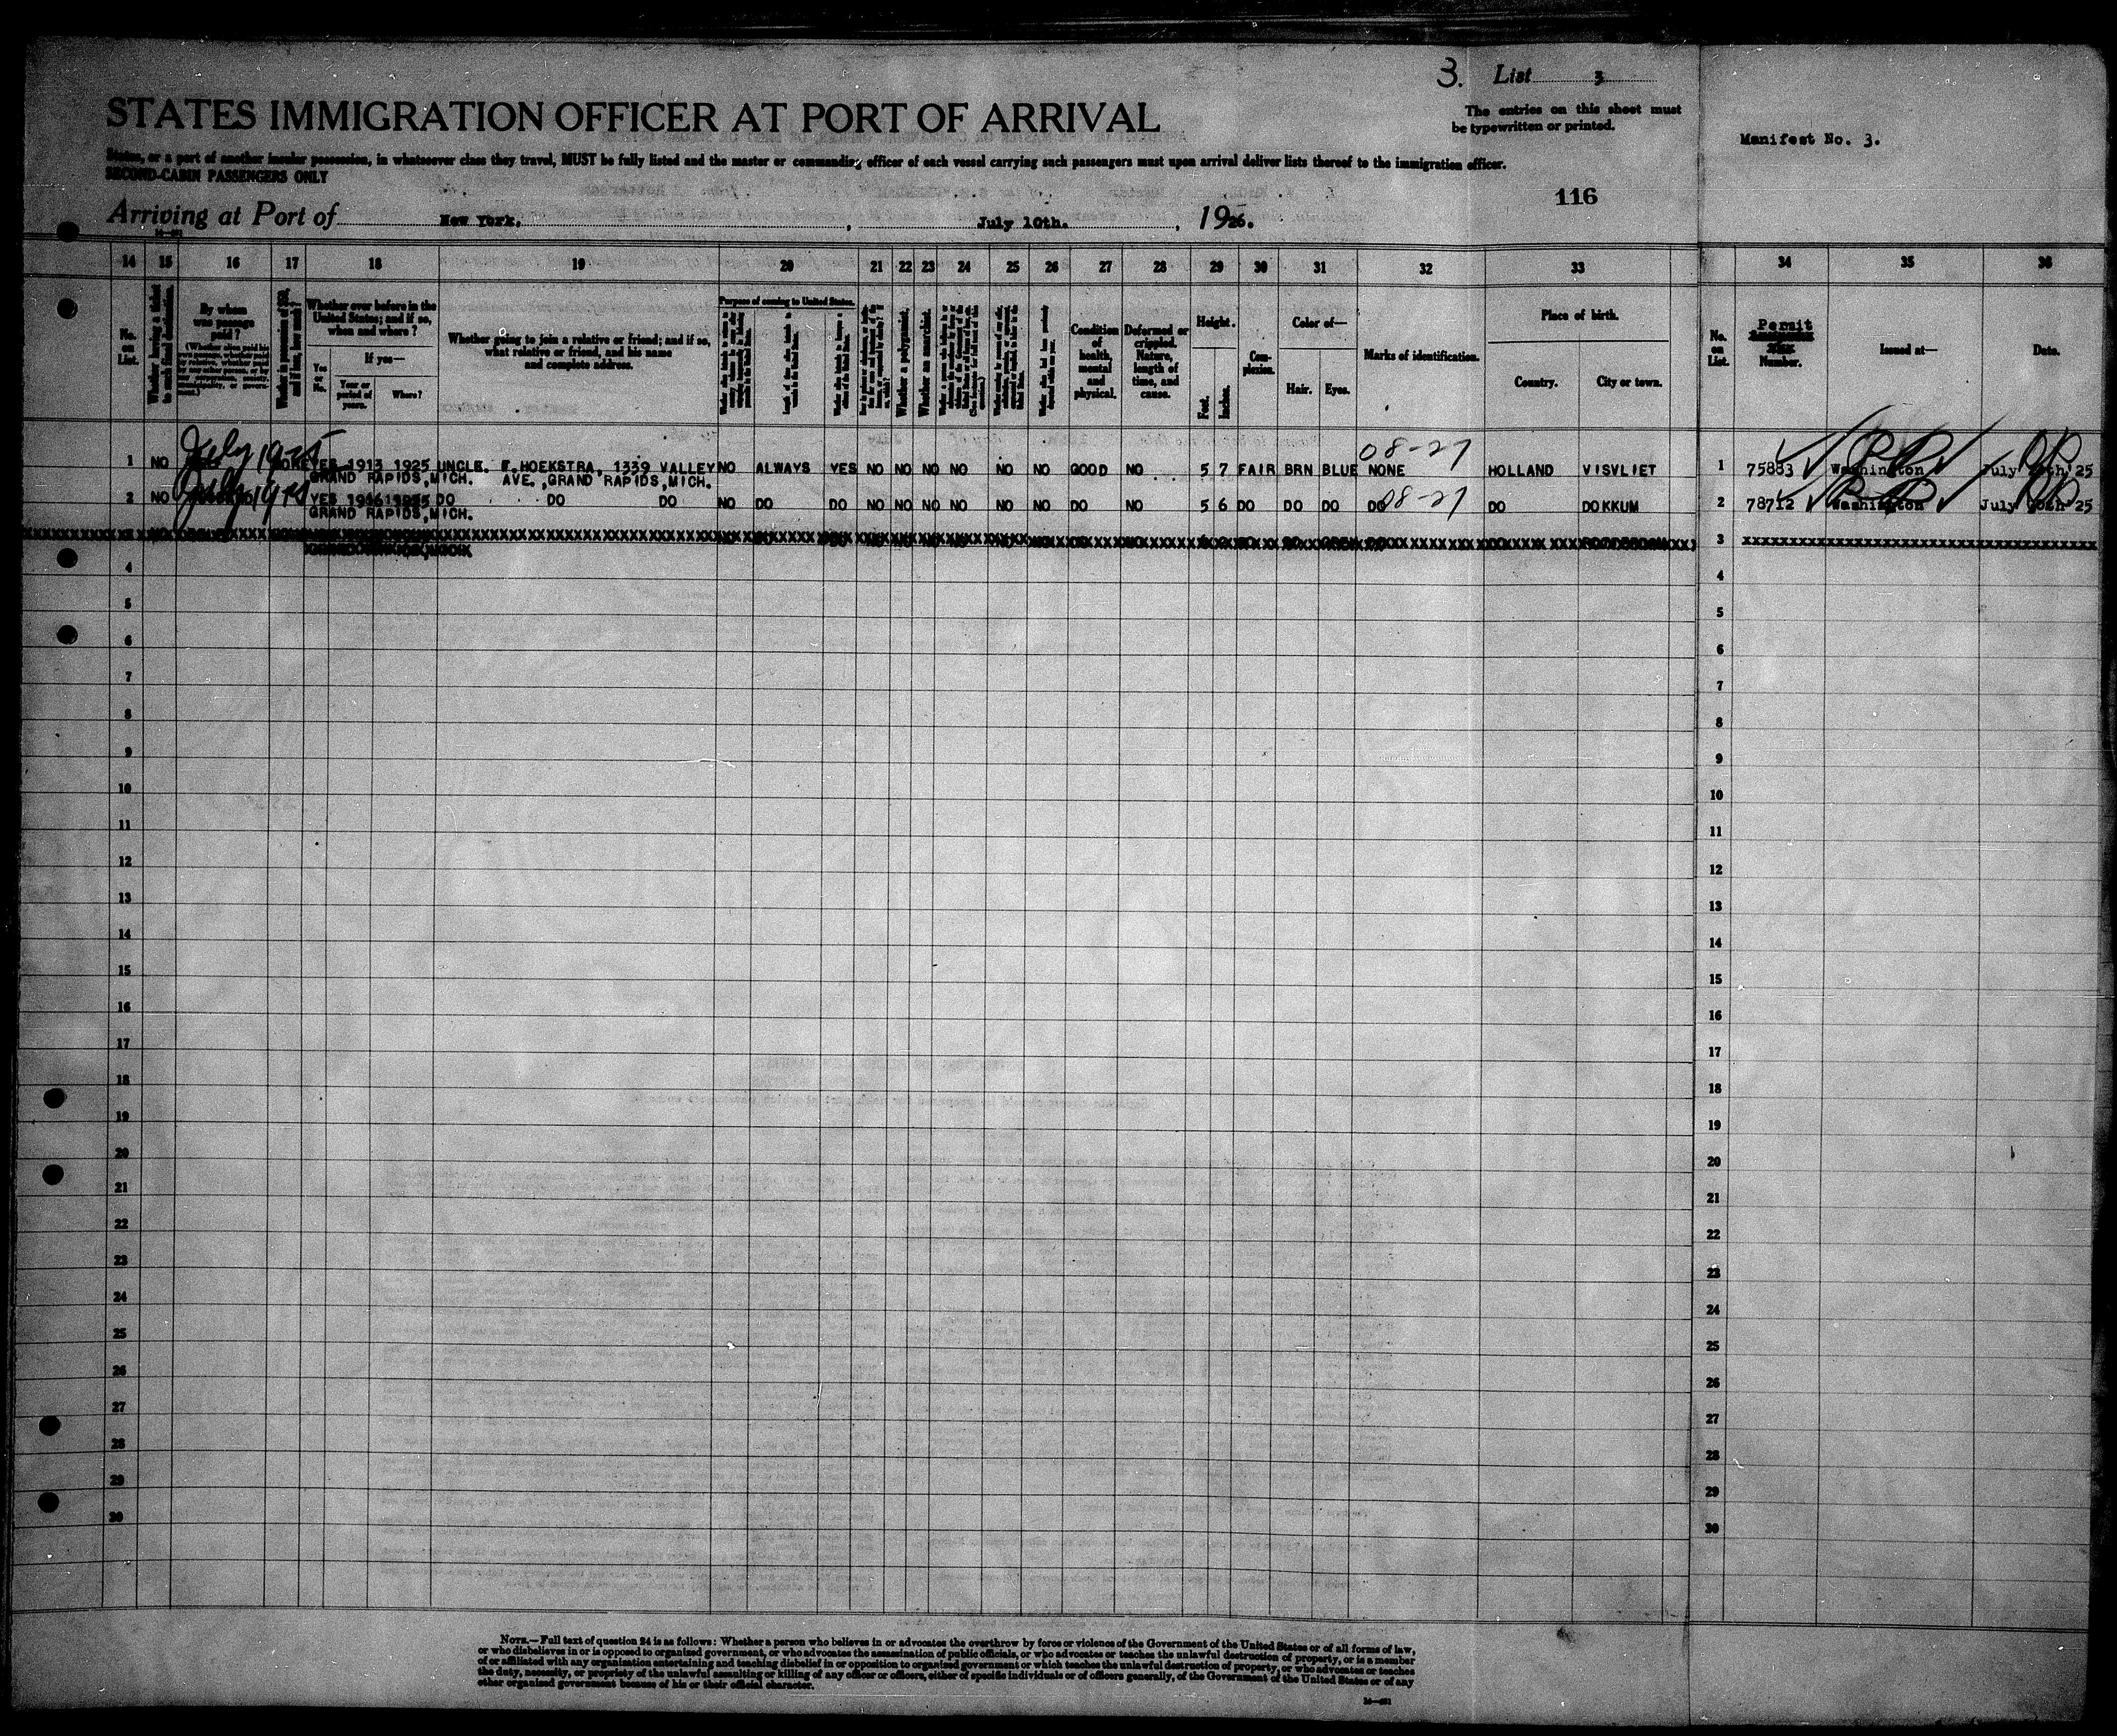 3. List 3
STATES IMMIGRATION OFFICER AT PORT OF ARRIVAL
The entries on this sheet must
be typewritten or printed.
Manifest No. 3.
States, or a part of another insular possession, in whatsoever class they travel, MUST be fully listed and the master or commanding officer of each vessel carrying such passengers must upon arrival deliver lists thereof to the immigration officer.
SECOND-CABIN PASSENGERS ONLY
116
Arriving at Port of New York. , July 10th. , 1926.
14 15 16 17 18 19 20 21 22 23 24 25 26 27 28 29 30 31 32 33 34 35 36
No. on List.
By whom was passage paid?
Whether ever before in the United States; and if so, when and where?
Yes or No.
If yes—
Year or period of years.
Where?
Whether going to join a relative or friend; and if so, what relative or friend, and his name and complete address.
Purpose of coming to United States.
Whether a polygamist.
Whether an anarchist.
Condition of health, mental and physical.
Deformed or crippled. Nature, length of time, and cause.
Height.
Feet. Inches.
Complexion.
Color of—
Hair. Eyes.
Marks of identification.
Place of birth.
Country. City or town.
No. on List.
Permit
Number.
Issued at—
Date.
July 1925
08-27
1 NO YES 1913 1925 UNCLE. F.HOEKSTRA, 1339 VALLEY NO ALWAYS YES NO NO NO NO NO NO GOOD NO 5 7 FAIR BRN BLUE NONE HOLLAND VISVLIET 1 75883 Washington July 25
GRAND RAPIDS,MICH. AVE.,GRAND RAPIDS,MICH.
2 NO YES 1925 DO DO DO NO DO DO NO NO NO NO NO NO DO NO 5 6 DO DO DO DO 08-27 DO DOKKUM 2 78712 Washington July 25
GRAND RAPIDS,MICH.
3
4 4
5 5
6 6
7 7
8 8
9 9
10 10
11 11
12 12
13 13
14 14
15 15
16 16
17 17
18 18
19 19
20 20
21 21
22 22
23 23
24 24
25 25
26 26
27 27
28 28
29 29
30 30
NOTE.—Full text of question 24 is as follows: Whether a person who believes in or advocates the overthrow by force or violence of the Government of the United States or of all forms of law,
or who disbelieves in or is opposed to organized government, or who advocates the assassination of public officials, or who advocates or teaches the unlawful destruction of property, or is a member
of or affiliated with any organization entertaining and teaching disbelief in or opposition to organized government or which teaches the unlawful destruction of property, or who advocates or teaches
the duty, necessity, or propriety of the unlawful assaulting or killing of any officer or officers, either of specific individuals or of officers generally, of the Government of the United States or of any
other organized government because of his or their official character.